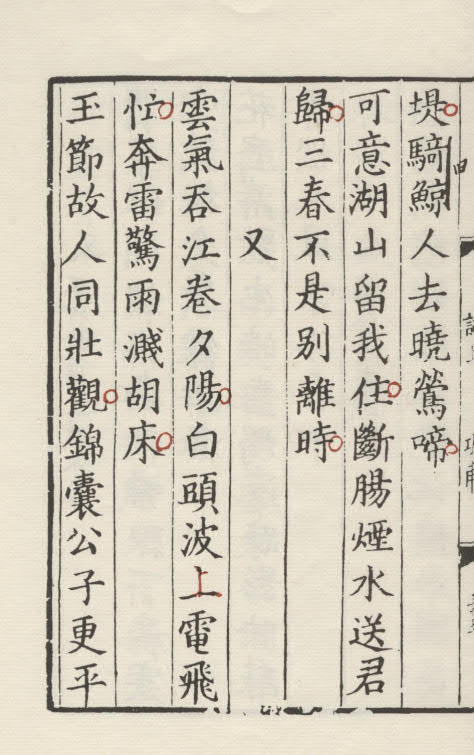 堤騎鯨人去曉鶯啼
可意湖山留我住斷腸煙水送君
歸三春不是别離時
又
雲氣吞江卷夕陽白頭波上電飛
忙奔雷驚雨濺胡床
玉節故人同壯觀錦囊公子更平